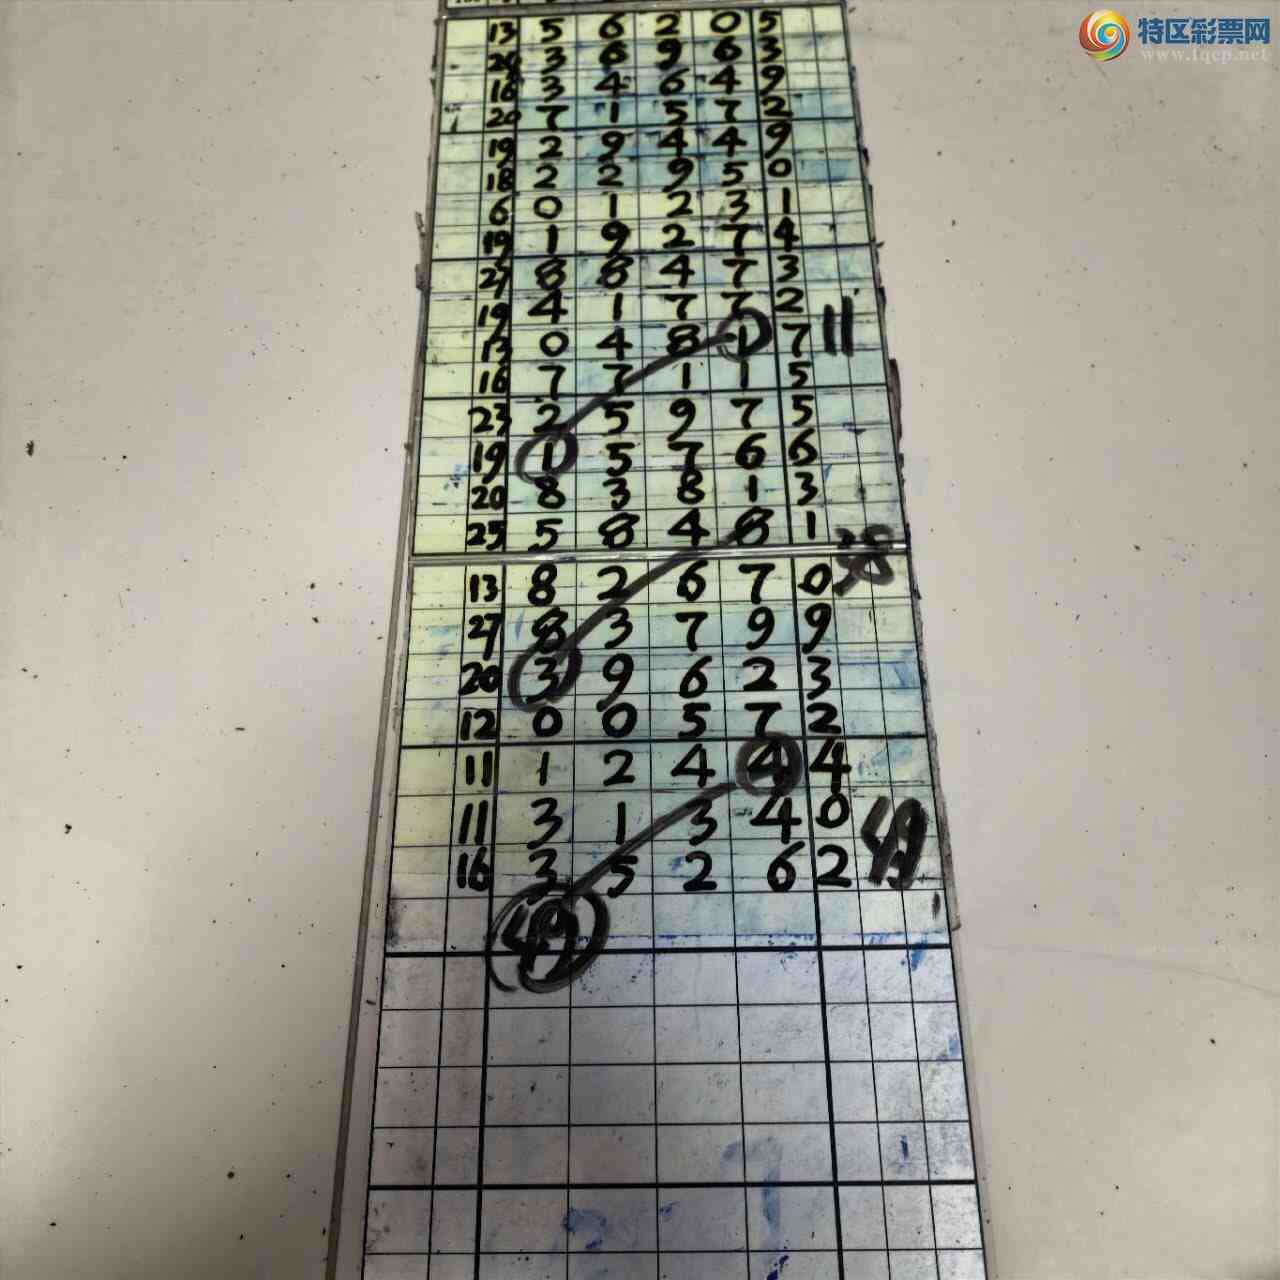 特区彩票网
www.tqcp.net
13 5 6 2 0 5
20 3 6 9 6 3
16 3 4 6 4 9
20 7 1 5 7 2
19 2 9 4 4 9
18 2 2 9 5 0
6 0 1 2 3 1
19 1 9 2 7 4
27 8 8 4 7 3
19 4 1 7 7 2
13 0 4 8 1 7 11
16 7 7 1 1 5
23 2 5 9 7 5
19 1 5 7 6 6
20 8 3 8 1 3
25 5 8 4 8 1
38
13 8 2 6 7 0
27 8 3 7 9 9
20 3 9 6 2 3
12 0 0 5 7 2
11 1 2 4 4 4
11 3 1 3 4 0
49
16 3 5 2 6 2
49